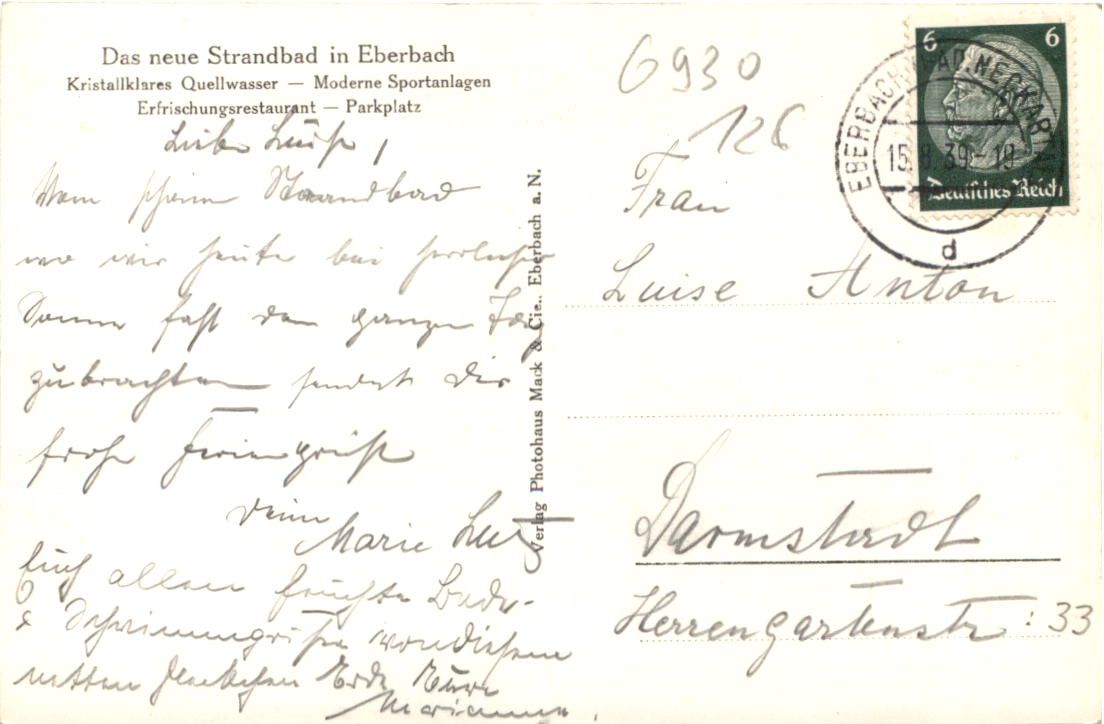 Das neue Strandbad in Eberbach
Kristallklares Quellwasser — Moderne Sportanlagen
Erfrischungsrestaurant — Parkplatz
Liebe Luise,
Vom schönen Strandbad
wo wir heute bei herrlicher
Sonne fast den ganzen Tag
zubrachten sendet Dir
frohe Feriengrüße
Deine
Marie
Euch allen feuchte Bade-
& Schwimmgrüße von diesem
netten Fleckchen Erde Eure
Marianne.
Verlag Photohaus Mack & Cie., Eberbach a. N.
6930
126
6 6
Deutsches Reich
EBERBACH
15.8.39-19
d
Frau
Luise Anton
Darmstadt
Herrengartenstr: 33